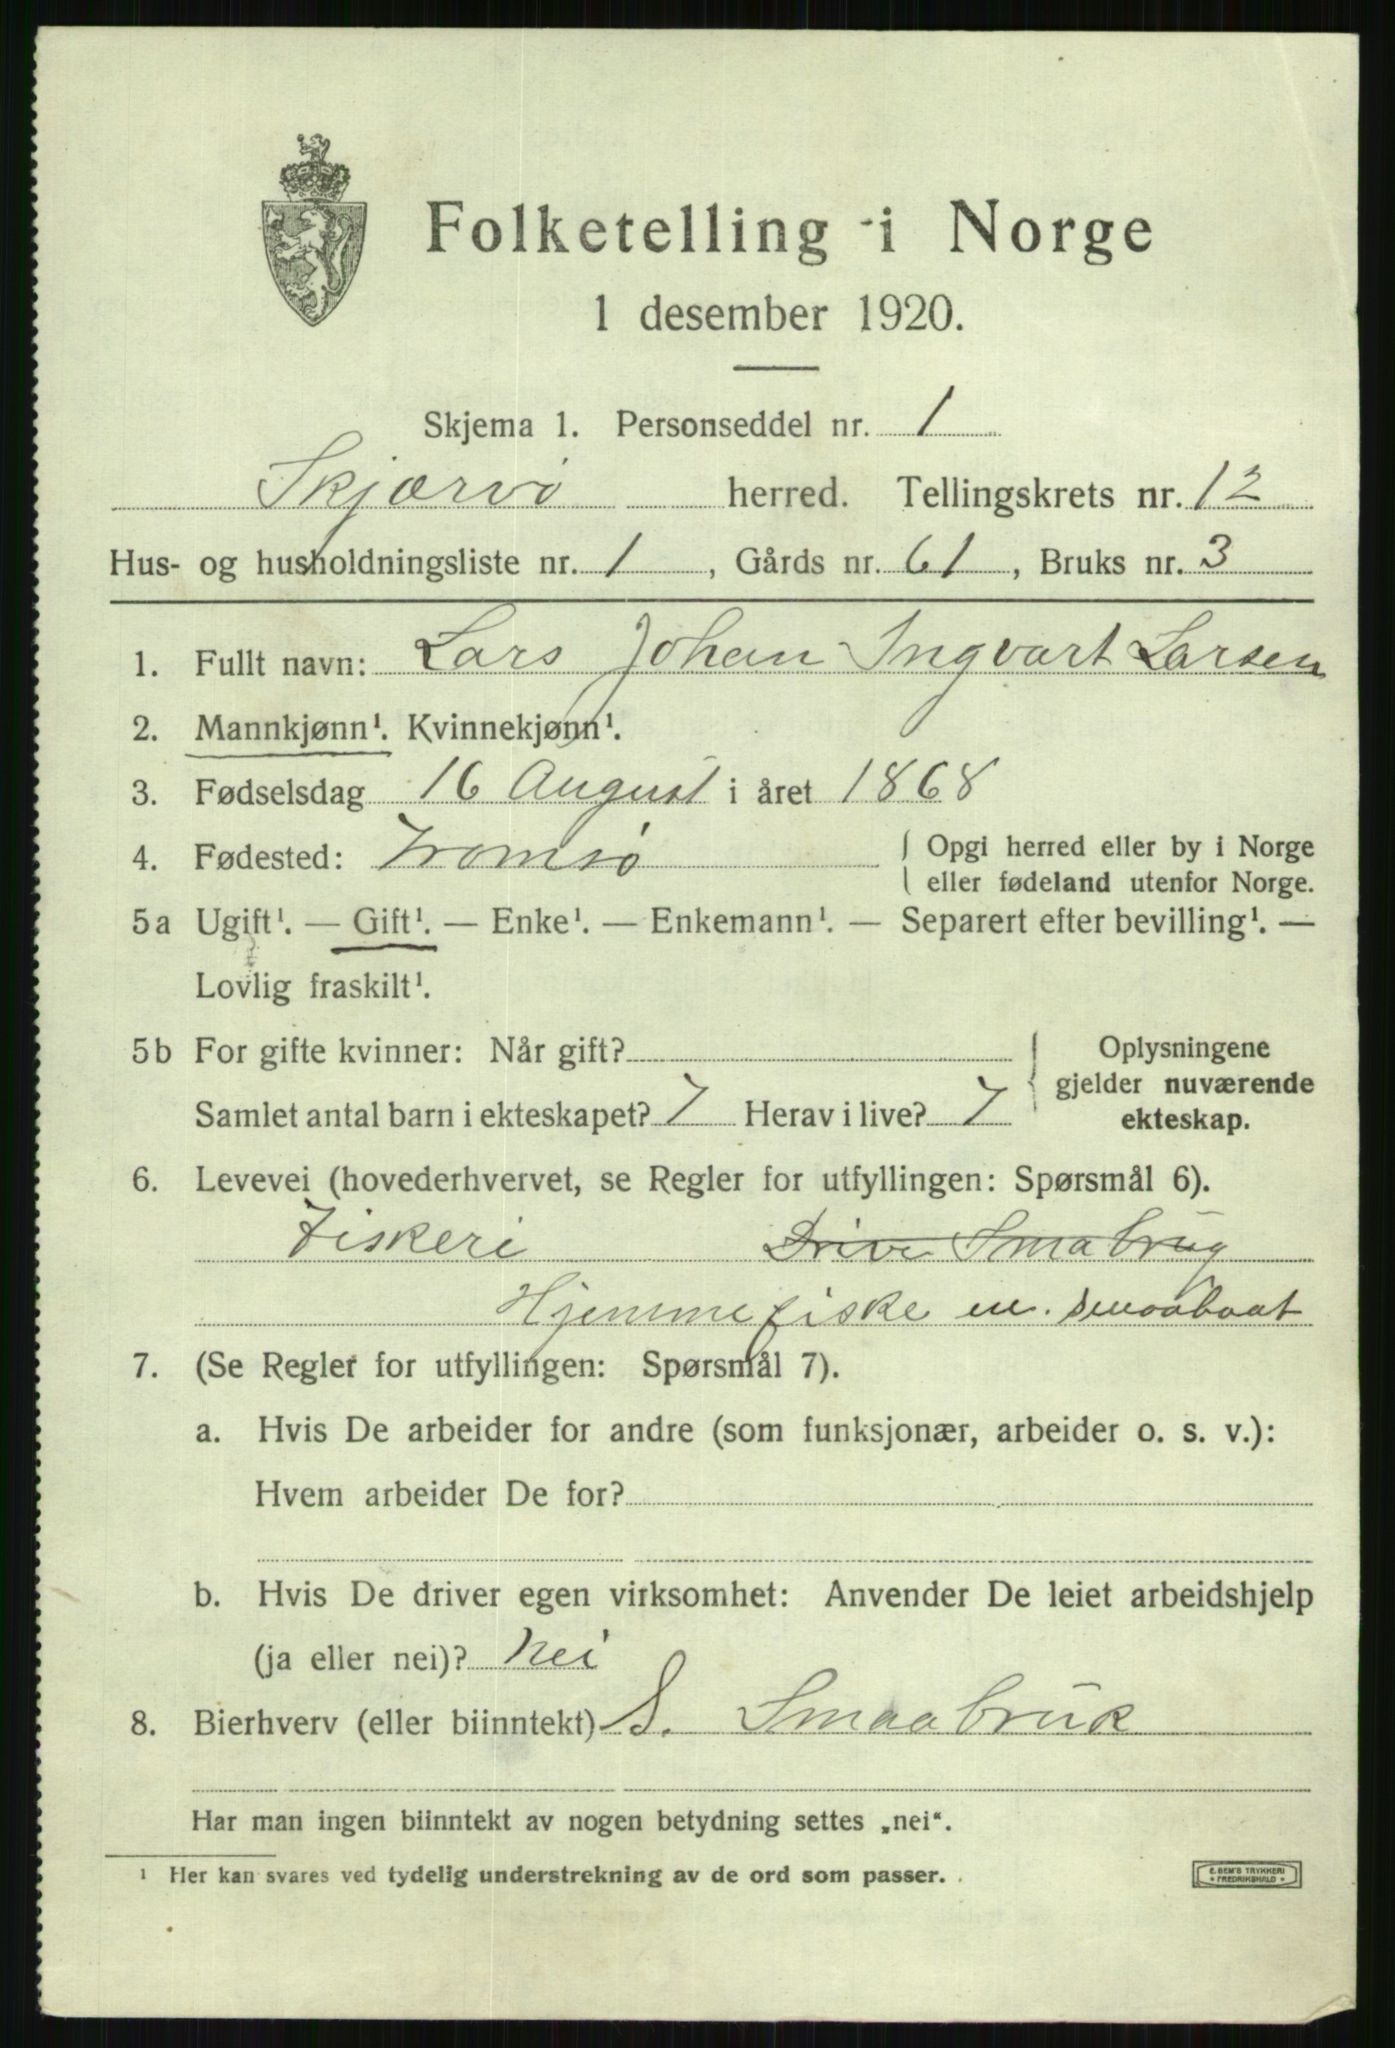 Folketelling i Norge
1 desember 1920.
Skjema 1. Personseddel nr. 1
Skjærvö herred. Tellingskrets nr. 12
Hus- og husholdningsliste nr. 1, Gårds nr. 61, Bruks nr. 3
1. Fullt navn: Lars Johan Ingvart Larsen
2. Mannkjønn¹. Kvinnekjønn¹.
3. Fødselsdag 16 August i året 1868
4. Fødested: Tromsö
Opgi herred eller by i Norge
eller fødeland utenfor Norge.
5a Ugift¹. — Gift¹. — Enke¹. — Enkemann¹. — Separert efter bevilling¹. —
Lovlig fraskilt¹.
5b For gifte kvinner: Når gift?
Samlet antal barn i ekteskapet? 7 Herav i live? 7
Oplysningene
gjelder nuværende
ekteskap.
6. Levevei (hovederhvervet, se Regler for utfyllingen: Spørsmål 6).
Fiskeri Driver Smabrug
Hjemmefiske m. smaabaat
7. (Se Regler for utfyllingen: Spørsmål 7).
a. Hvis De arbeider for andre (som funksjonær, arbeider o. s. v.):
Hvem arbeider De for?
b. Hvis De driver egen virksomhet: Anvender De leiet arbeidshjelp
(ja eller nei)? Nei
8. Bierhverv (eller biinntekt) S. Smaabruk
Har man ingen biinntekt av nogen betydning settes „nei“.
¹ Her kan svares ved tydelig understrekning av de ord som passer.
E. SEM'S TRYKKERI
FREDRIKSHALD